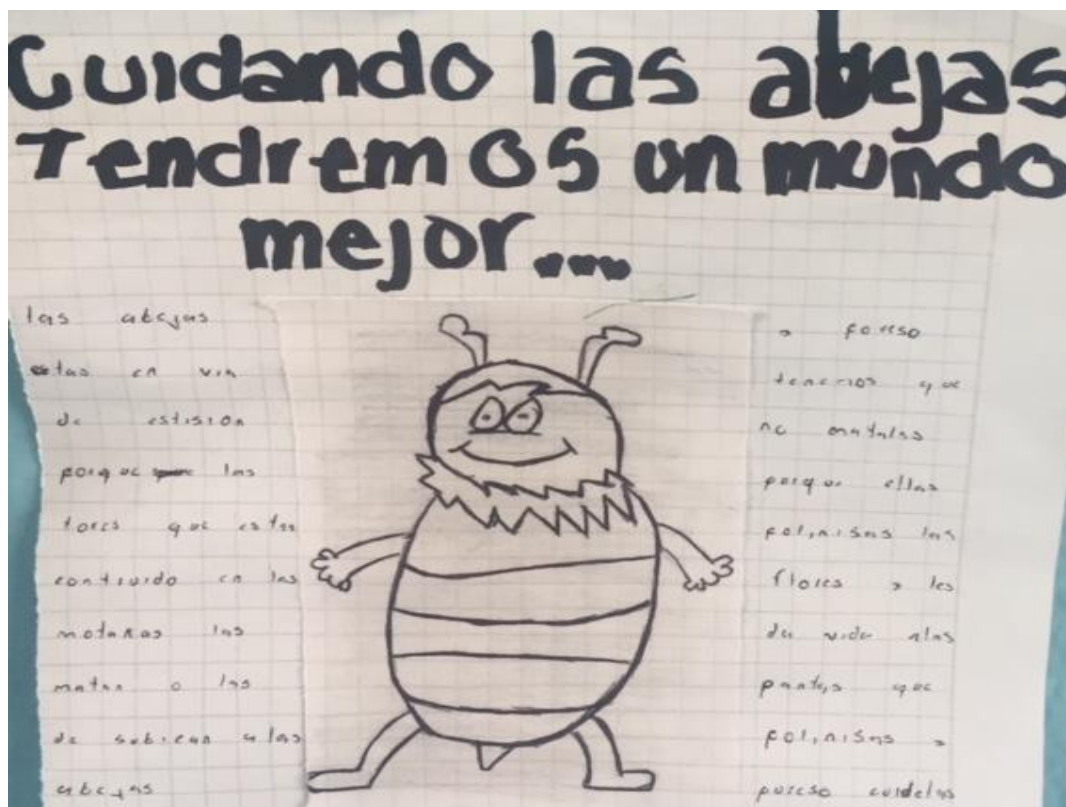 Cuidando las abejas
Tendremos un mundo
mejor...
las abejas
estas en via
de estision
porque las
tores que estan
contruido en las
motañas las
matan o las
de subican a las
abejas
y poreso
tenemos que
no matalas
porque ellas
polinisas las
flores y les
da vida alas
pantas que
polinisas y
poreso cuidelas